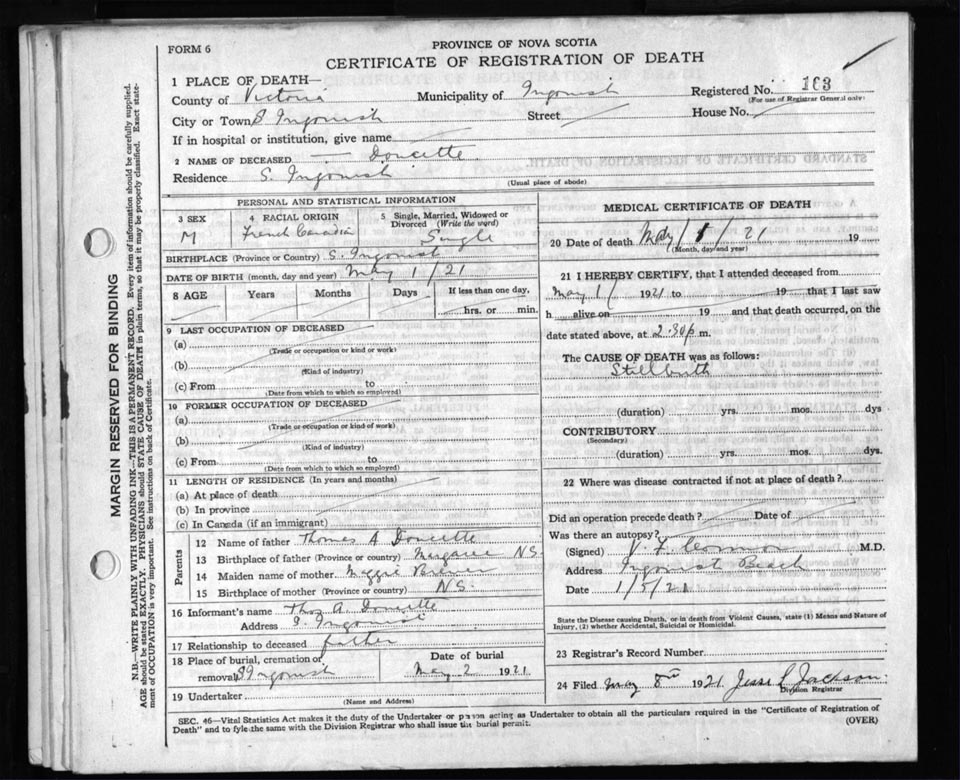 PROVINCE OF NOVA SCOTIA
FORM 6
CERTIFICATE OF REGISTRATION OF DEATH
1 PLACE OF DEATH—
County of Victoria Municipality of Ingonish Registered No. 163
(For use of Registrar General only)
City or Town S Ingonish Street House No.
If in hospital or institution, give name
2 NAME OF DECEASED — Doucette
Residence S. Ingonish
(Usual place of abode)
PERSONAL AND STATISTICAL INFORMATION
3 SEX 4 RACIAL ORIGIN 5 Single, Married, Widowed or Divorced (Write the word)
M French Canadian Single
BIRTHPLACE (Province or Country) S. Ingonish
DATE OF BIRTH (month, day and year) May 1/21
8 AGE Years Months Days If less than one day,
hrs. or min.
9 LAST OCCUPATION OF DECEASED
(a)
(Trade or occupation or kind or work)
(b)
(Kind of industry)
(c) From to
(Date from which to which so employed)
10 FORMER OCCUPATION OF DECEASED
(a)
(Trade or occupation or kind of work)
(b)
(Kind of industry)
(c) From to
(Date from which to which so employed)
11 LENGTH OF RESIDENCE (In years and months)
(a) At place of death
(b) In province
(c) In Canada (if an immigrant)
Parents
12 Name of father Thomas A Doucette
13 Birthplace of father (Province or country) Margaree N.S.
14 Maiden name of mother Maggie Brewer
15 Birthplace of mother (Province or country) N.S.
16 Informant's name Thos A. Doucette
Address S. Ingonish
17 Relationship to deceased father
18 Place of burial, cremation or removal S Ingonish Date of burial May 2 1921
19 Undertaker
(Name and Address)
MEDICAL CERTIFICATE OF DEATH
20 Date of death May / 1 / 21 19
(Month, day and year)
21 I HEREBY CERTIFY, that I attended deceased from
May 1/ 1921 to 19 that I last saw
h alive on 19 and that death occurred, on the
date stated above, at 2.30 p m.
The CAUSE OF DEATH was as follows:
Stillbirth
(duration) yrs. mos. dys
CONTRIBUTORY
(Secondary)
(duration) yrs. mos. dys.
22 Where was disease contracted if not at place of death?
Did an operation precede death? Date of
Was there an autopsy?
(Signed) M.D.
Address Ingonish Beach
Date 1/5/21
State the Disease causing Death, or in death from Violent Causes, state (1) Means and Nature of
Injury, (2) whether Accidental, Suicidal or Homicidal.
23 Registrar's Record Number
24 Filed May 8th 1921 Jesse L Jackson
Division Registrar
SEC. 46—Vital Statistics Act makes it the duty of the Undertaker or person acting as Undertaker to obtain all the particulars required in the "Certificate of Registration of
Death" and to fyle the same with the Division Registrar who shall issue the burial permit. (OVER)
MARGIN RESERVED FOR BINDING
N.B.—WRITE PLAINLY WITH UNFADING INK—THIS IS A PERMANENT RECORD. Every item of information should be carefully supplied.
AGE should be stated EXACTLY. PHYSICIANS should STATE CAUSE OF DEATH in plain terms, so that it may be properly classified. Exact state-
ment of OCCUPATION is very important. See instructions on back of Certificate.